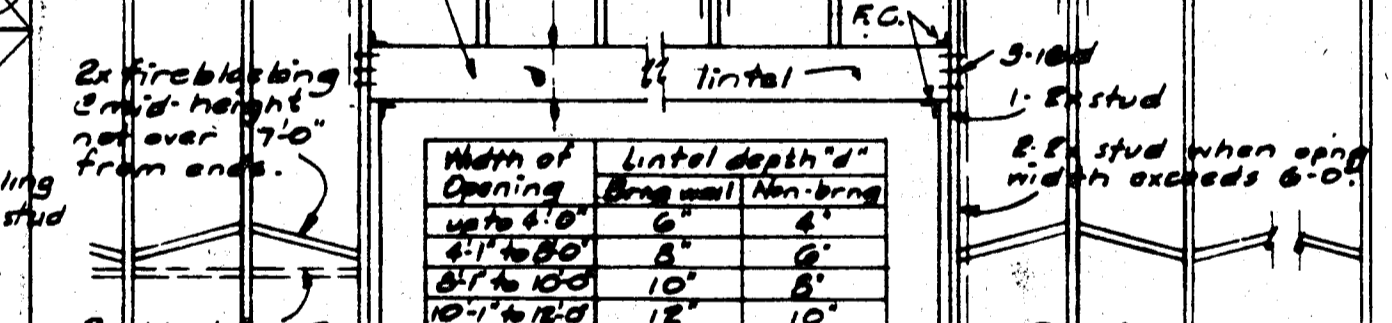 F.C.
2x fireblocking
@ mid-height
not over 7'-0"
from ends.
lintel
1-2x stud
2-2x stud when opng
width exceeds 6'-0".
ling
stud
Width of Opening
Lintel depth "d"
Brng wall
Non-brng
up to 4'-0"
6"
4"
4'-1" to 8'-0"
8"
6"
8'-1" to 10'-0"
10"
8"
10'-1" to 12'-0"
12"
10"